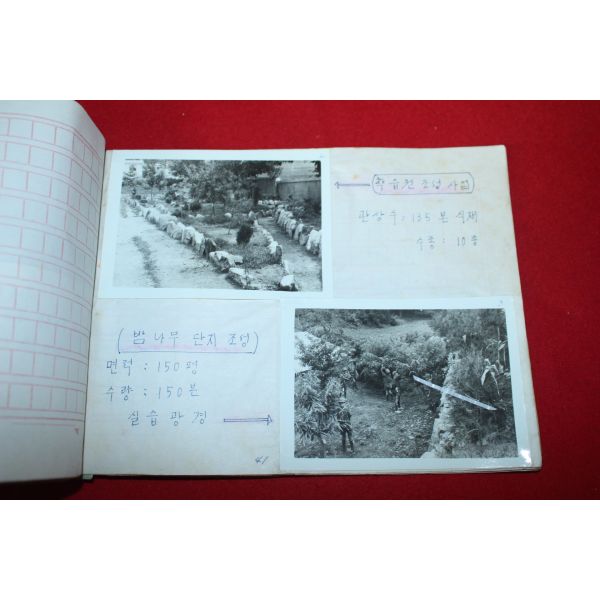 학습원 조성 사업
관상수 : 135 본 식재
수종 : 10 종
(밤나무 단지 조성)
면적 : 150 평
수량 : 150 본
실습 광경
41